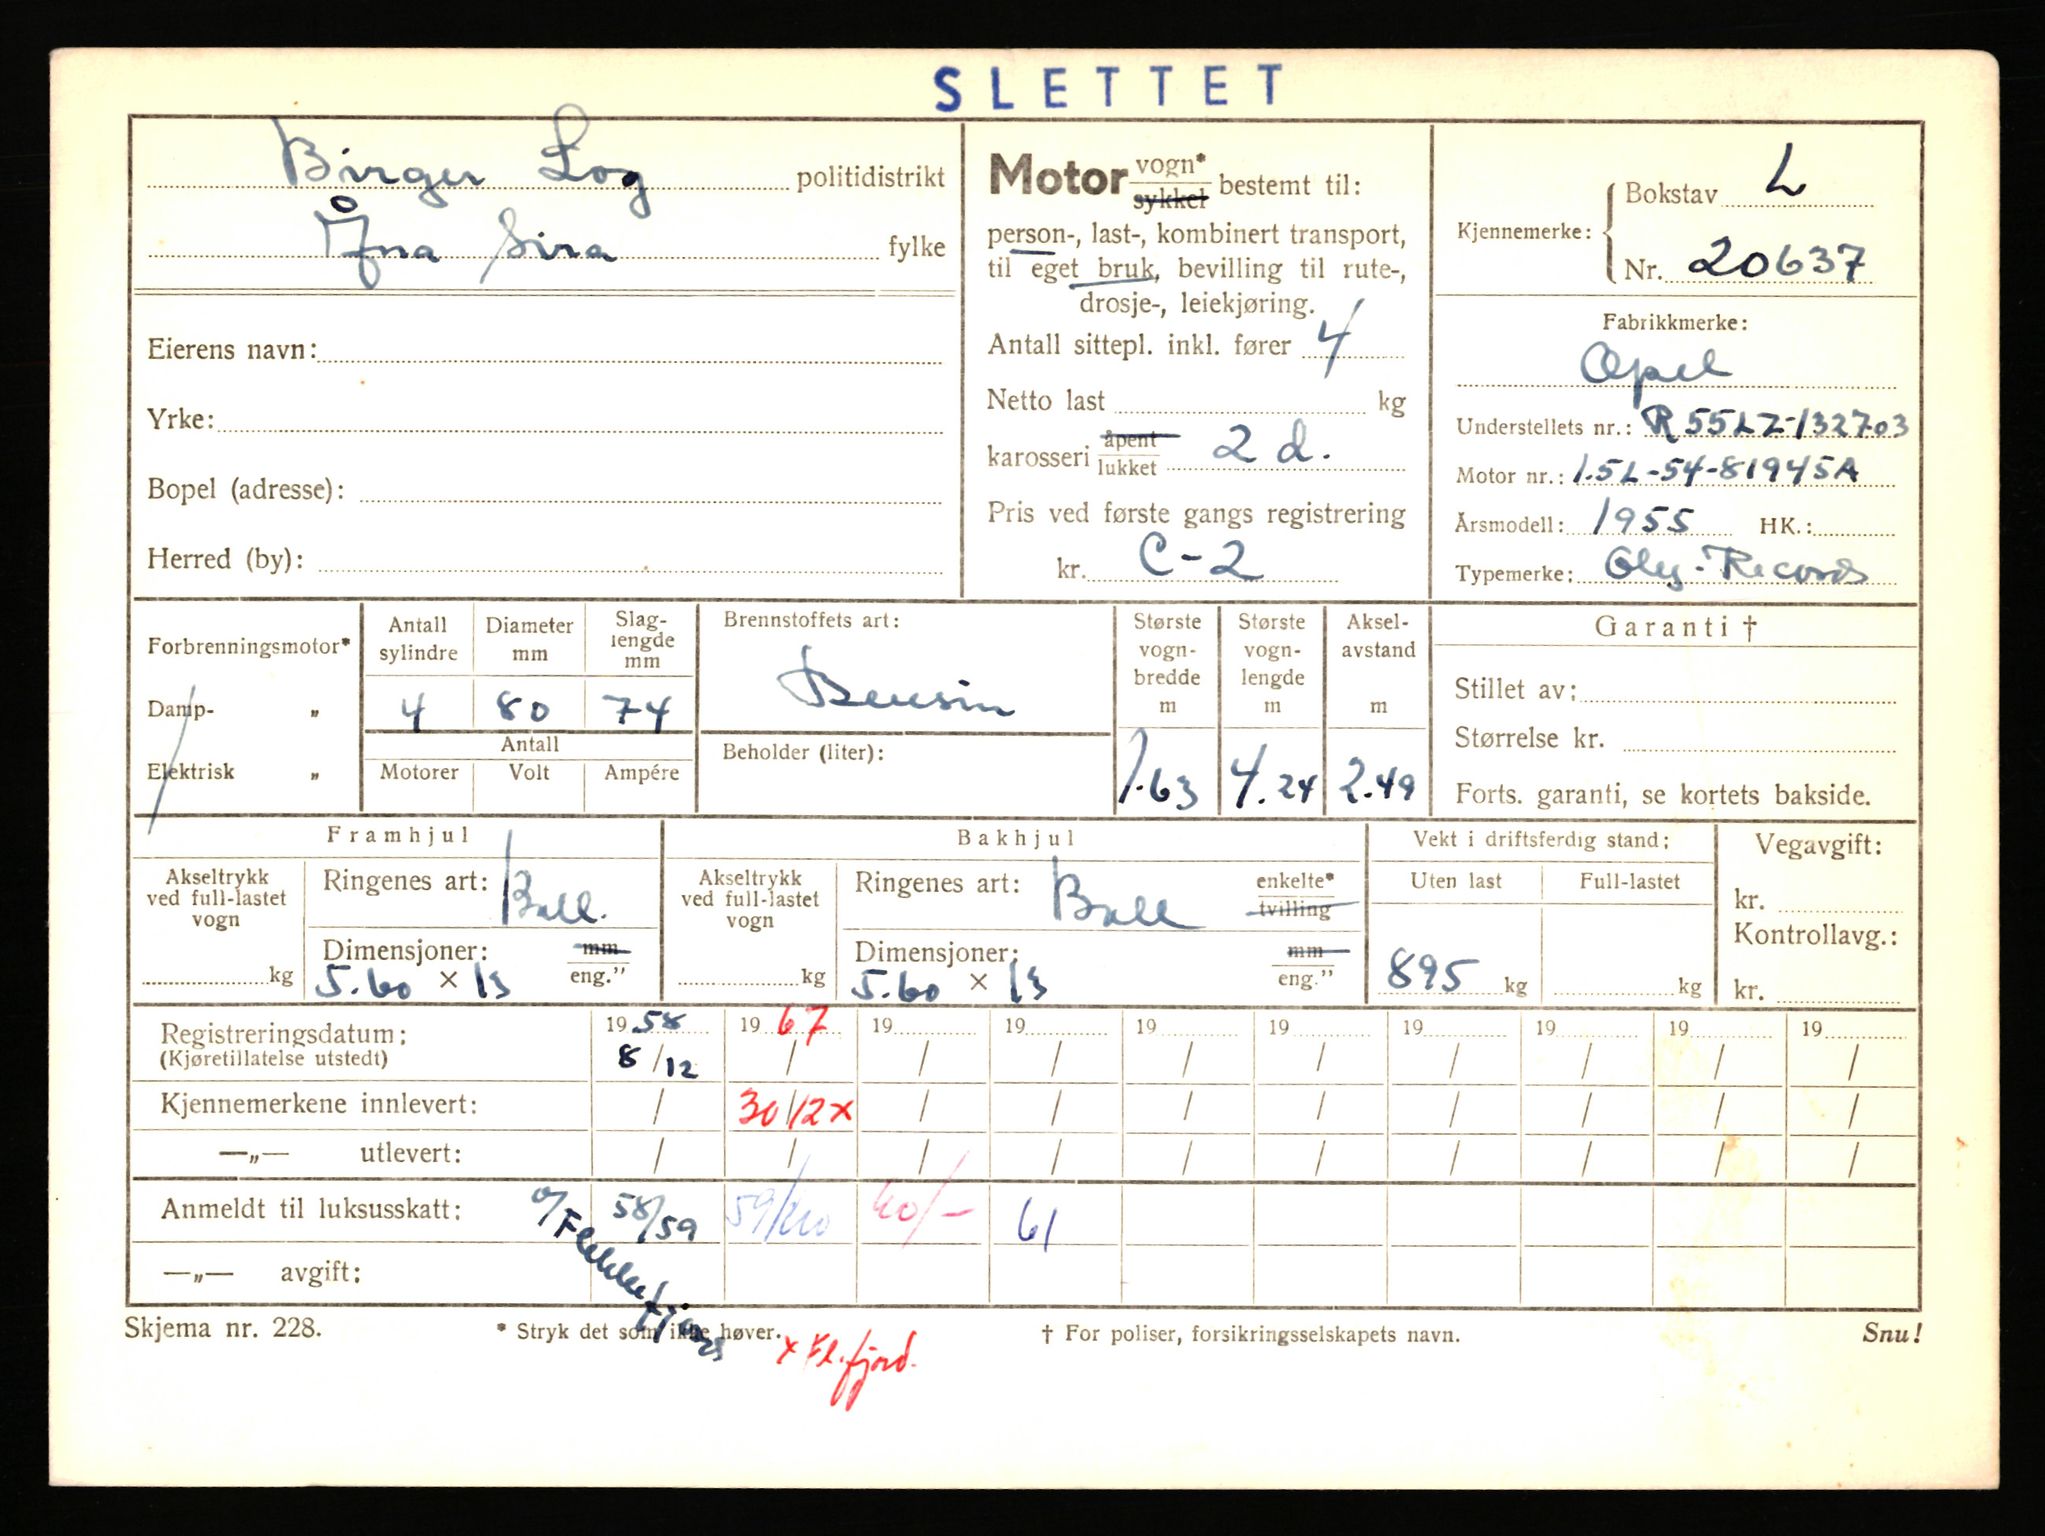 SLETTET
Birger Log politidistrikt
Åna Sira fylke
Eierens navn:
Yrke:
Bopel (adresse):
Herred (by):
Motor vogn* sykkel bestemt til:
person-, last-, kombinert transport,
til eget bruk, bevilling til rute-,
drosje-, leiekjøring.
Antall sittepl. inkl. fører 4
Netto last kg
karosseri åpent lukket 2 d.
Pris ved første gangs registrering
kr. C-2
Kjennemerke: Bokstav L
Nr. 20637
Fabrikkmerke:
Opel
Understellets nr.: R 55LZ-132703
Motor nr.: 1.5L-54-81945A
Årsmodell: 1955 HK.:
Typemerke: Oly-Records
Forbrenningsmotor*
Damp- „
Elektrisk „
Antall sylindre Diameter mm Slag-lengde mm
4 80 74
Antall
Motorer Volt Ampére
Brennstoffets art:
Bensin
Beholder (liter):
Største vogn-bredde m Største vogn-lengde m Aksel-avstand m
1.63 4.24 2.49
Garanti †
Stillet av:
Størrelse kr.
Forts. garanti, se kortets bakside.
Framhjul
Akseltrykk ved full-lastet vogn
kg
Ringenes art: Ball.
Dimensjoner: mm eng."
5.60 × 13
Bakhjul
Akseltrykk ved full-lastet vogn
kg
Ringenes art: Ball enkelte* tvilling
Dimensjoner: mm eng."
5.60 × 13
Vekt i driftsferdig stand:
Uten last Full-lastet
895 kg kg
Vegavgift:
kr.
Kontrollavg.:
kr.
Registreringsdatum: 1958 1967 19 19 19 19 19 19 19 19
(Kjøretillatelse utstedt) 8/12 / / / / / / / / /
Kjennemerkene innlevert: / 30/12x / / / / / / / /
—„— utlevert: / / / / / / / / / /
Anmeldt til luksusskatt: 58/59 59/60 60/- 61
o/Flekkefjord
—„— avgift:
Skjema nr. 228. * Stryk det som ikke høver. † For poliser, forsikringsselskapets navn. Snu!
x Fl.fjord.